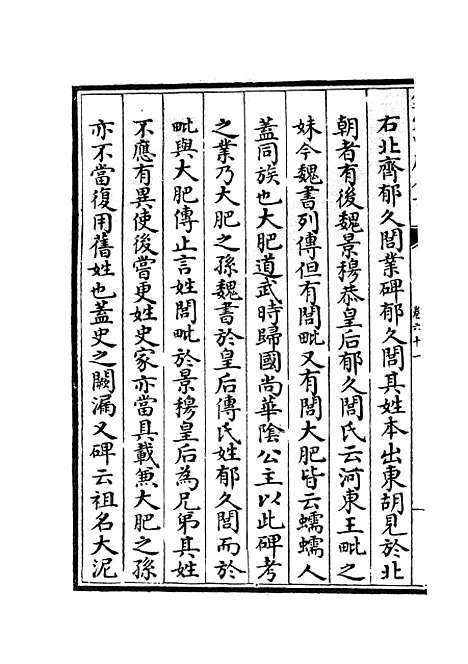 右北齊郁久閭業碑郁久閭其姓本出東胡見於北
朝者有後魏景穆恭皇后郁久閭氏云河東王毗之
妹今魏書列傳但有閭毗又有閭大肥皆云蠕蠕人
蓋同族也大肥道武時歸國尚華陰公主以此碑考
之業乃大肥之孫魏書於皇后傳氏姓郁久閭而於
毗與大肥傳止言姓閭毗於景穆皇后為兄弟其姓
不應有異使後嘗更姓史家亦當具載兼大肥之孫
亦不當復用舊姓也蓋史之闕漏又碑云祖名大泥
卷六十一